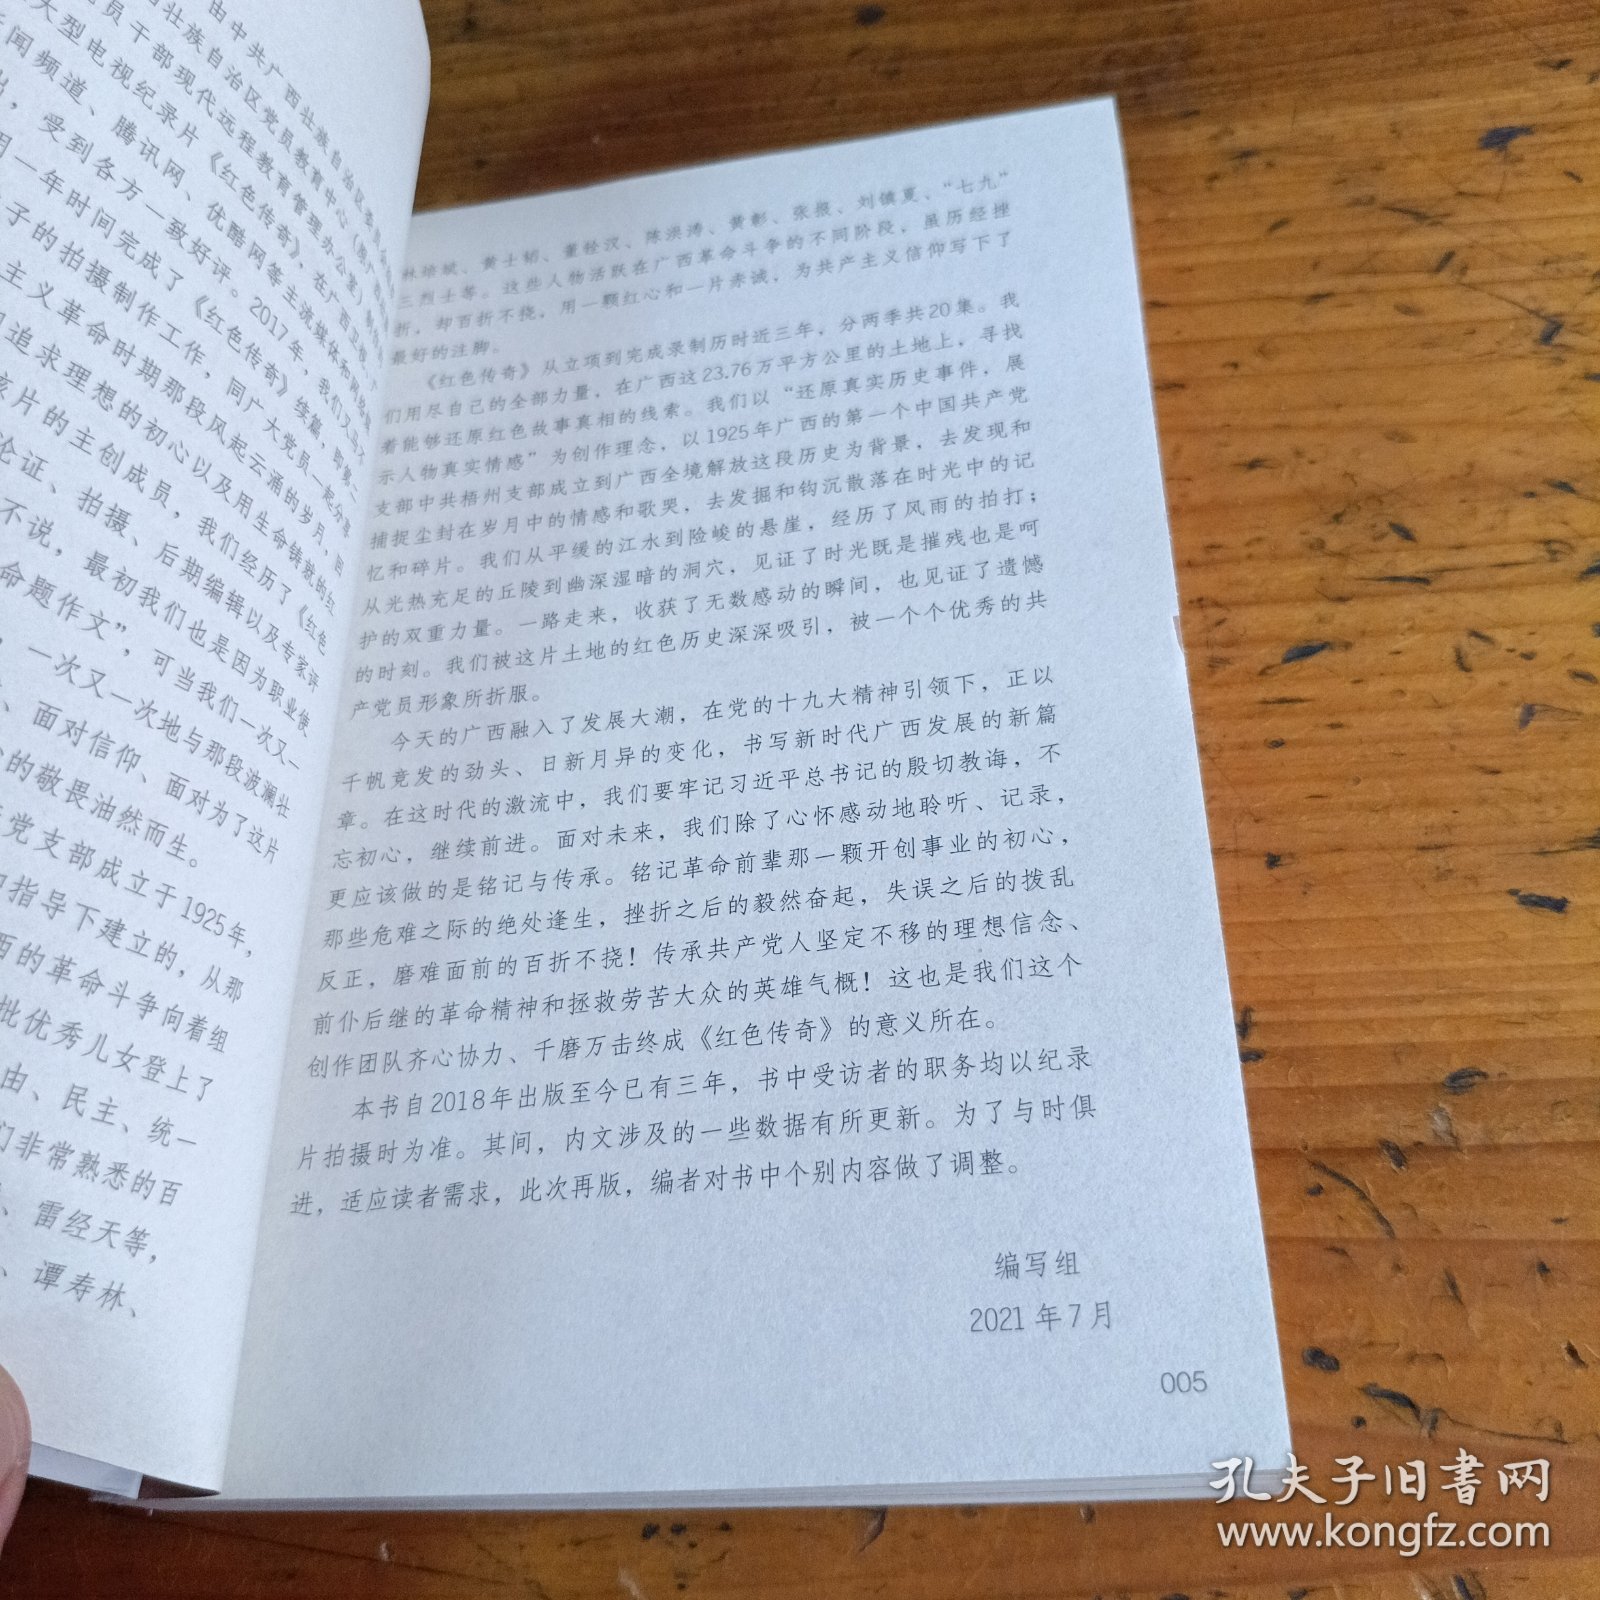 由中共广西壮族自治区委员
壮族自治区党员教育中心
员干部现代远程教育管理办公室
大型电视纪录片《红色传奇》，在广西卫视、
闻频道、腾讯网、优酷网等主流媒体和网络
出，受到各方一致好评。2017年，我们又马不
用一年时间完成了《红色传奇》续篇，即第二
子的拍摄制作工作，同广大党员一起分享
主义革命时期那段风起云涌的岁月，回
追求理想的初心以及用生命铸就的红
该片的主创成员，我们经历了《红色
论证、拍摄、后期编辑以及专家评
不说，最初我们也是因为职业使
命题作文”，可当我们一次又一
，一次又一次地与那段波澜壮
、面对信仰、面对为了这片
的敬畏油然而生。
党支部成立于1925年，
指导下建立的，从那
西的革命斗争向着组
批优秀儿女登上了
由、民主、统一
们非常熟悉的百
、雷经天等，
、谭寿林、
林培斌、黄士韬、董铨汉、陈洪涛、黄彰、张报、刘镇夏、“七九”
三烈士等。这些人物活跃在广西革命斗争的不同阶段，虽历经挫
折，却百折不挠，用一颗红心和一片赤诚，为共产主义信仰写下了
最好的注脚。
《红色传奇》从立项到完成录制历时近三年，分两季共20集。我
们用尽自己的全部力量，在广西这23.76万平方公里的土地上，寻找
着能够还原红色故事真相的线索。我们以“还原真实历史事件，展
示人物真实情感”为创作理念，以1925年广西的第一个中国共产党
支部中共梧州支部成立到广西全境解放这段历史为背景，去发现和
捕捉尘封在岁月中的情感和歌哭，去发掘和钩沉散落在时光中的记
忆和碎片。我们从平缓的江水到险峻的悬崖，经历了风雨的拍打；
从光热充足的丘陵到幽深湿暗的洞穴，见证了时光既是摧残也是呵
护的双重力量。一路走来，收获了无数感动的瞬间，也见证了遗憾
的时刻。我们被这片土地的红色历史深深吸引，被一个个优秀的共
产党员形象所折服。
今天的广西融入了发展大潮，在党的十九大精神引领下，正以
千帆竞发的劲头、日新月异的变化，书写新时代广西发展的新篇
章。在这时代的激流中，我们要牢记习近平总书记的殷切教诲，不
忘初心，继续前进。面对未来，我们除了心怀感动地聆听、记录，
更应该做的是铭记与传承。铭记革命前辈那一颗开创事业的初心，
那些危难之际的绝处逢生，挫折之后的毅然奋起，失误之后的拨乱
反正，磨难面前的百折不挠！传承共产党人坚定不移的理想信念、
前仆后继的革命精神和拯救劳苦大众的英雄气概！这也是我们这个
创作团队齐心协力、千磨万击终成《红色传奇》的意义所在。
本书自2018年出版至今已有三年，书中受访者的职务均以纪录
片拍摄时为准。其间，内文涉及的一些数据有所更新。为了与时俱
进，适应读者需求，此次再版，编者对书中个别内容做了调整。
编写组
2021年7月
005
孔夫子旧书网
www.kongfz.com